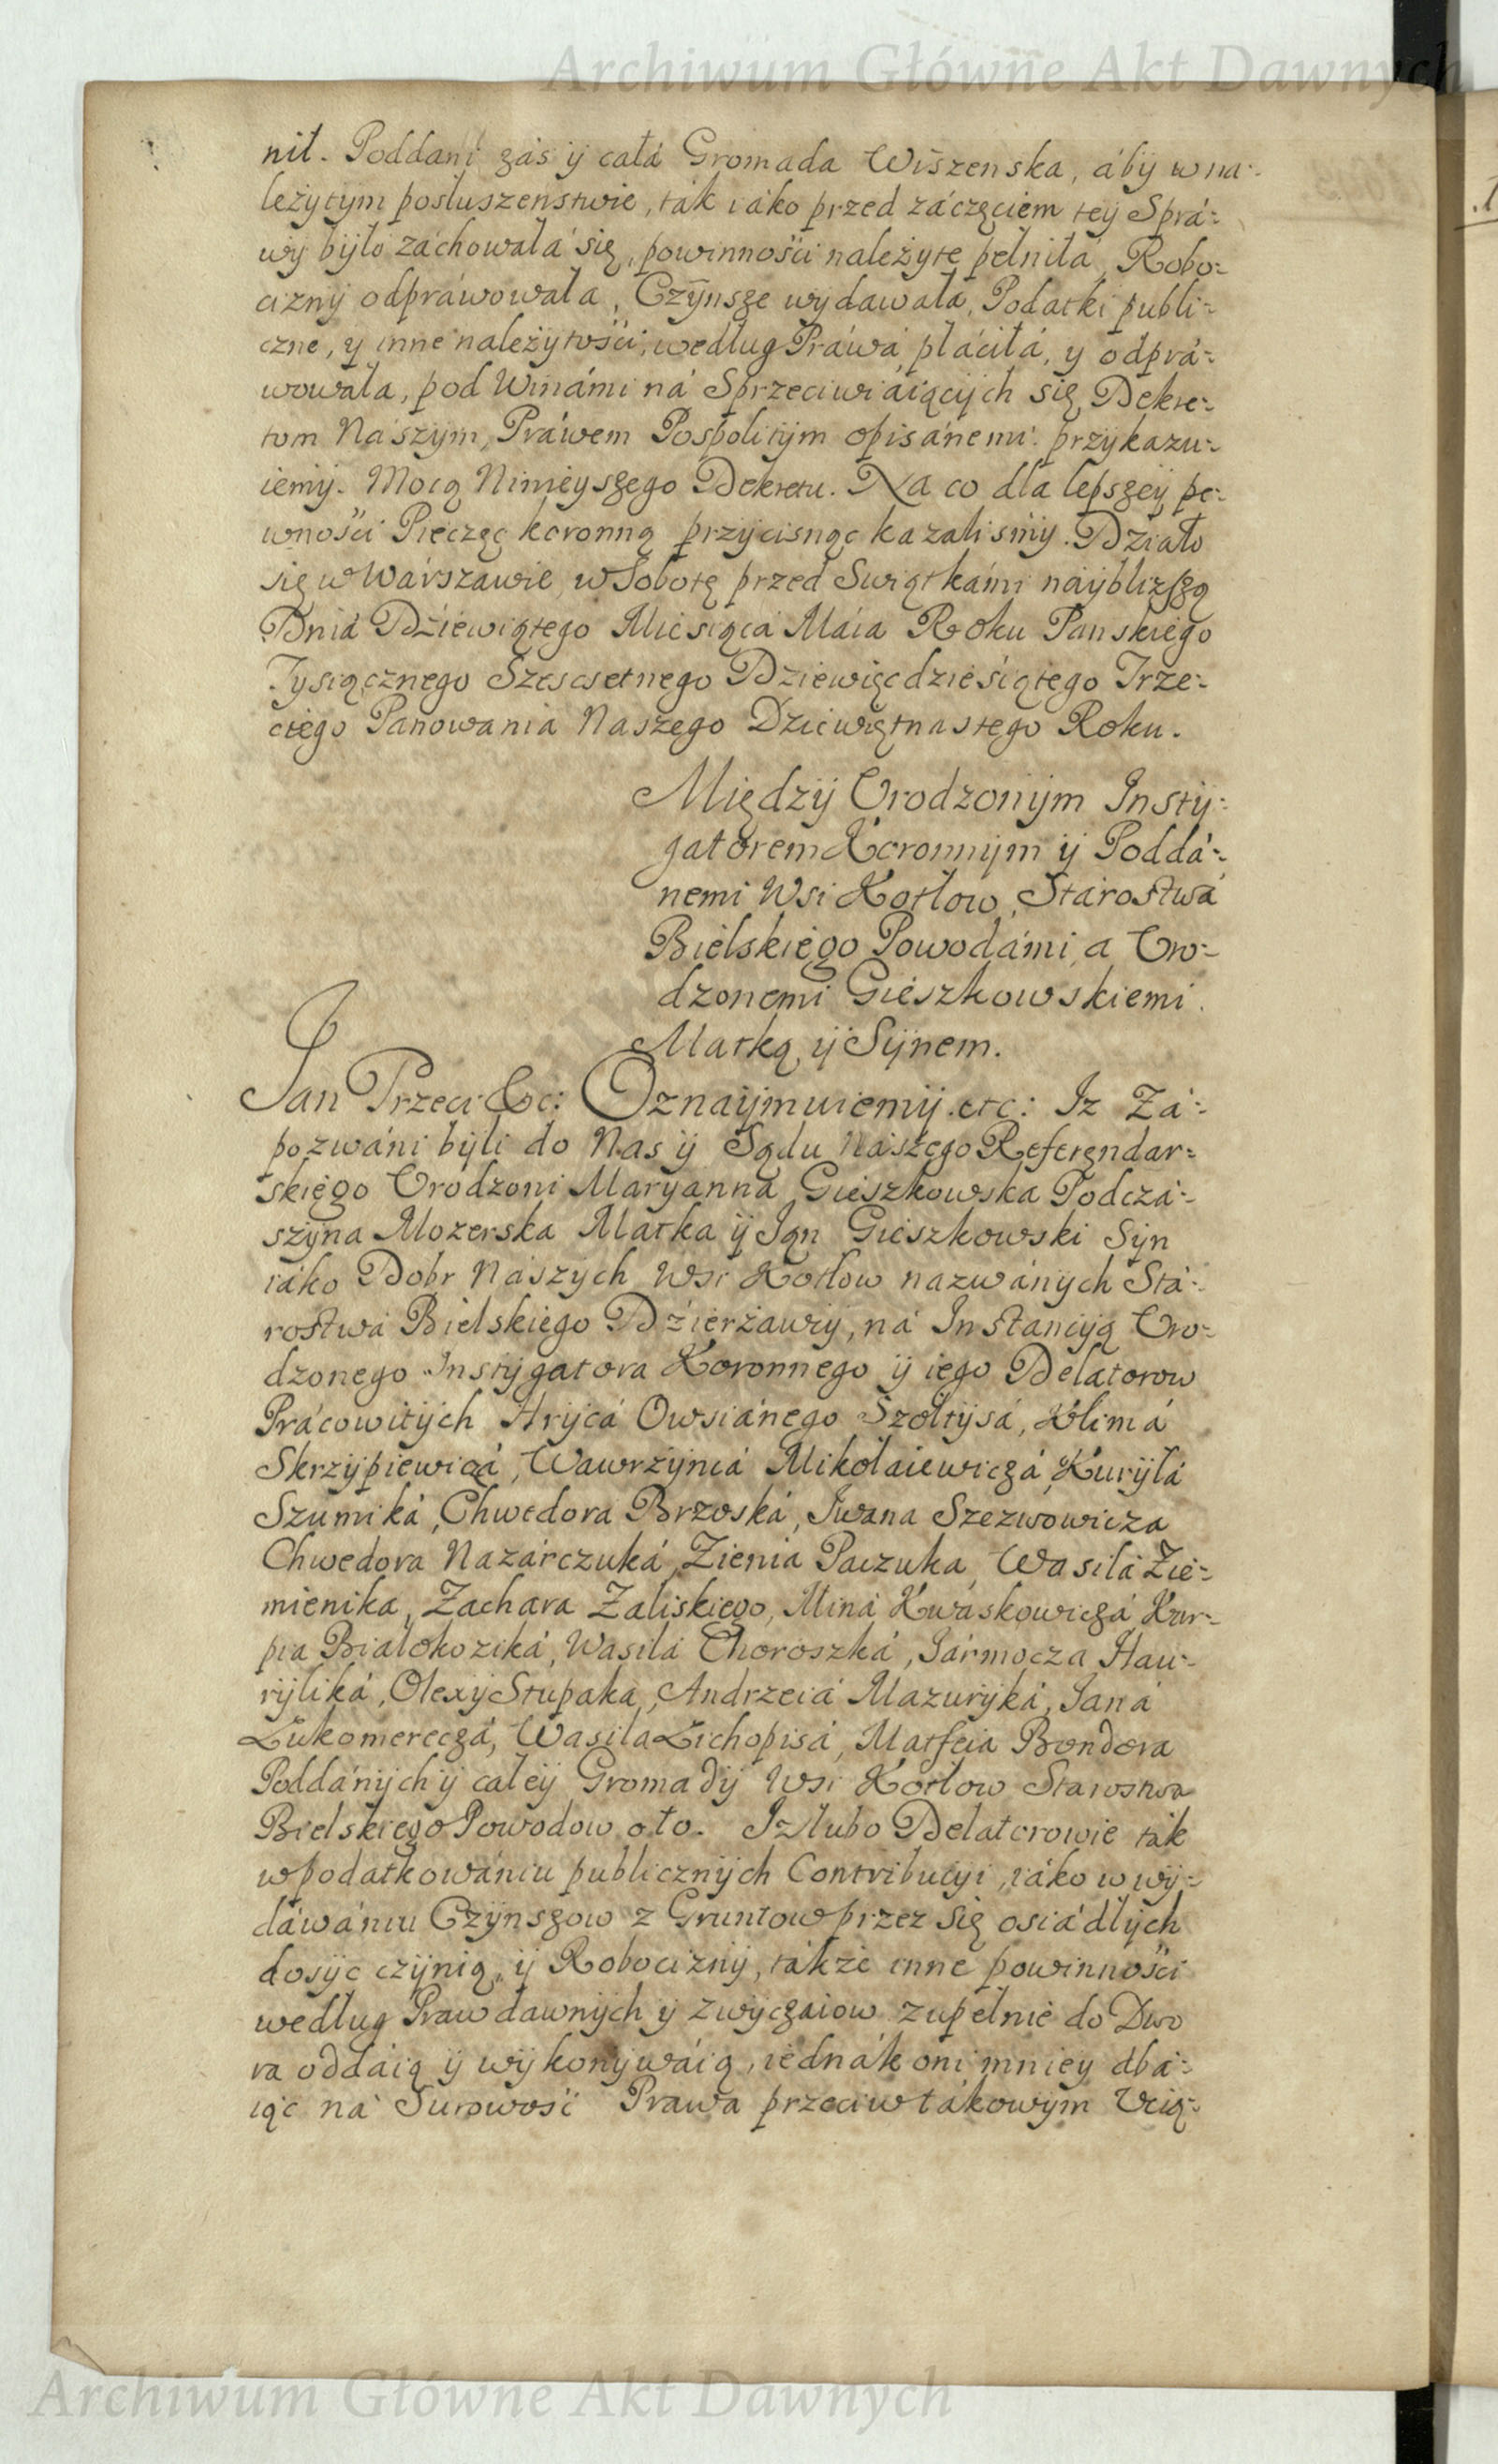 Archiwum Główne Akt Dawnych
nił. Poddani zás ÿ całá Gromada Wiszenska, ábÿ w na-
leżytÿm posłuszenstwie, ták iáko przed záczęciem teÿ Sprá-
wÿ bÿło záchowałá się, powinnosći należÿte pełniłá, Robo-
ciznÿ odpráwowała, Czÿnsze wÿdawałá, Podatki publi-
czne, y inne należytosći, według Práwá, płáciłá, y odprá-
wowała, pod Winámi ná Sprzeciwiáiącÿch się Dekre-
tom Nászÿm, Práwem Pospolitÿm opisánemi przÿkazu-
iemÿ. Mocą Ninieÿszego Dekretu. Na co dla lepszeÿ pe-
wnosći Pieczęc koronną przÿcisnąc kazalismÿ. Działo
się w Wárszawie w Sobotę przed Swiątkámi naÿbliższą
Dniá Dźiewiątego Miesiącá Máia Roku Panskiego
Tysiącznego Szescsetnego Dziewięcdziesiątego Trze-
ciego Panowania Naszego Dziewiętnastego Roku.
Międzÿ Urodzonÿm Instÿ-
gatorem Koronnÿm ÿ Poddá-
nemi Wsi Kotłow, Stárostwá
Bielskiego Powodámi, a Uro-
dzonemi Gieszkowskiemi
Matką ÿ Sÿnem.
Jan Trzeci &c: Oznaÿmuiemÿ. etc: Iz Zá-
pozwáni bÿli do Nas ÿ Sądu Nászego Referęndar-
skiego Urodzoni Maryanná Gieszkowska Podczá-
szÿna Mozerska Matka ÿ Ián Gieszkowski Sÿn
iáko Dobr Nászÿch Wsi Kotłow nazwánÿch Stá-
rostwá Bielskiego Dźierżawcÿ, ná Instancÿą Uro-
dzonego Instÿgatora Koronnego ÿ iego Delatorow
Prácowitÿch Hrÿcá Owsiánego Szołtÿsá, Klimá
Skrzÿpiewiczá, Wawrzÿncá Mikołaiewiczá, Kurÿłá
Szumiká, Chwedora Brzoská, Iwana
Chwedora Nazárczuká, Zienia Paczuka, Wasilá Zie-
mienika, Zachara Zaliskiego, Miná Kwáskowiczá Kar-
pia Białokoziká, Wasilá Choroszká, Jármocza Hau-
rÿliká, Olexÿ Stupaka, Andrzeiá Mazurÿká, Janá
Łukomereczá, Wasila Lichopisá, Matfeia Bondora
Poddánÿch ÿ całeÿ Gromadÿ Wsi Kotłow Starostwa
Bielskiego Powodow oto. Iz lubo Delatorowie tak
w podatkowániu publicznÿch Contribucÿi, iáko w wÿ-
dáwániu Czÿnszow z Gruntow przez się osiádłÿch
dosÿc czÿnią, ÿ Robociznÿ, tákże inne powinnosći
według Praw dawnÿch ÿ zwÿczaiow zupełnie do Dwo
ra oddáią ÿ wÿkonÿwáią, iednák oni mniey dbá-
iąc ná Surowosć Prawa przeciw tákowÿm Ucią-
Archiwum Główne Akt Dawnych